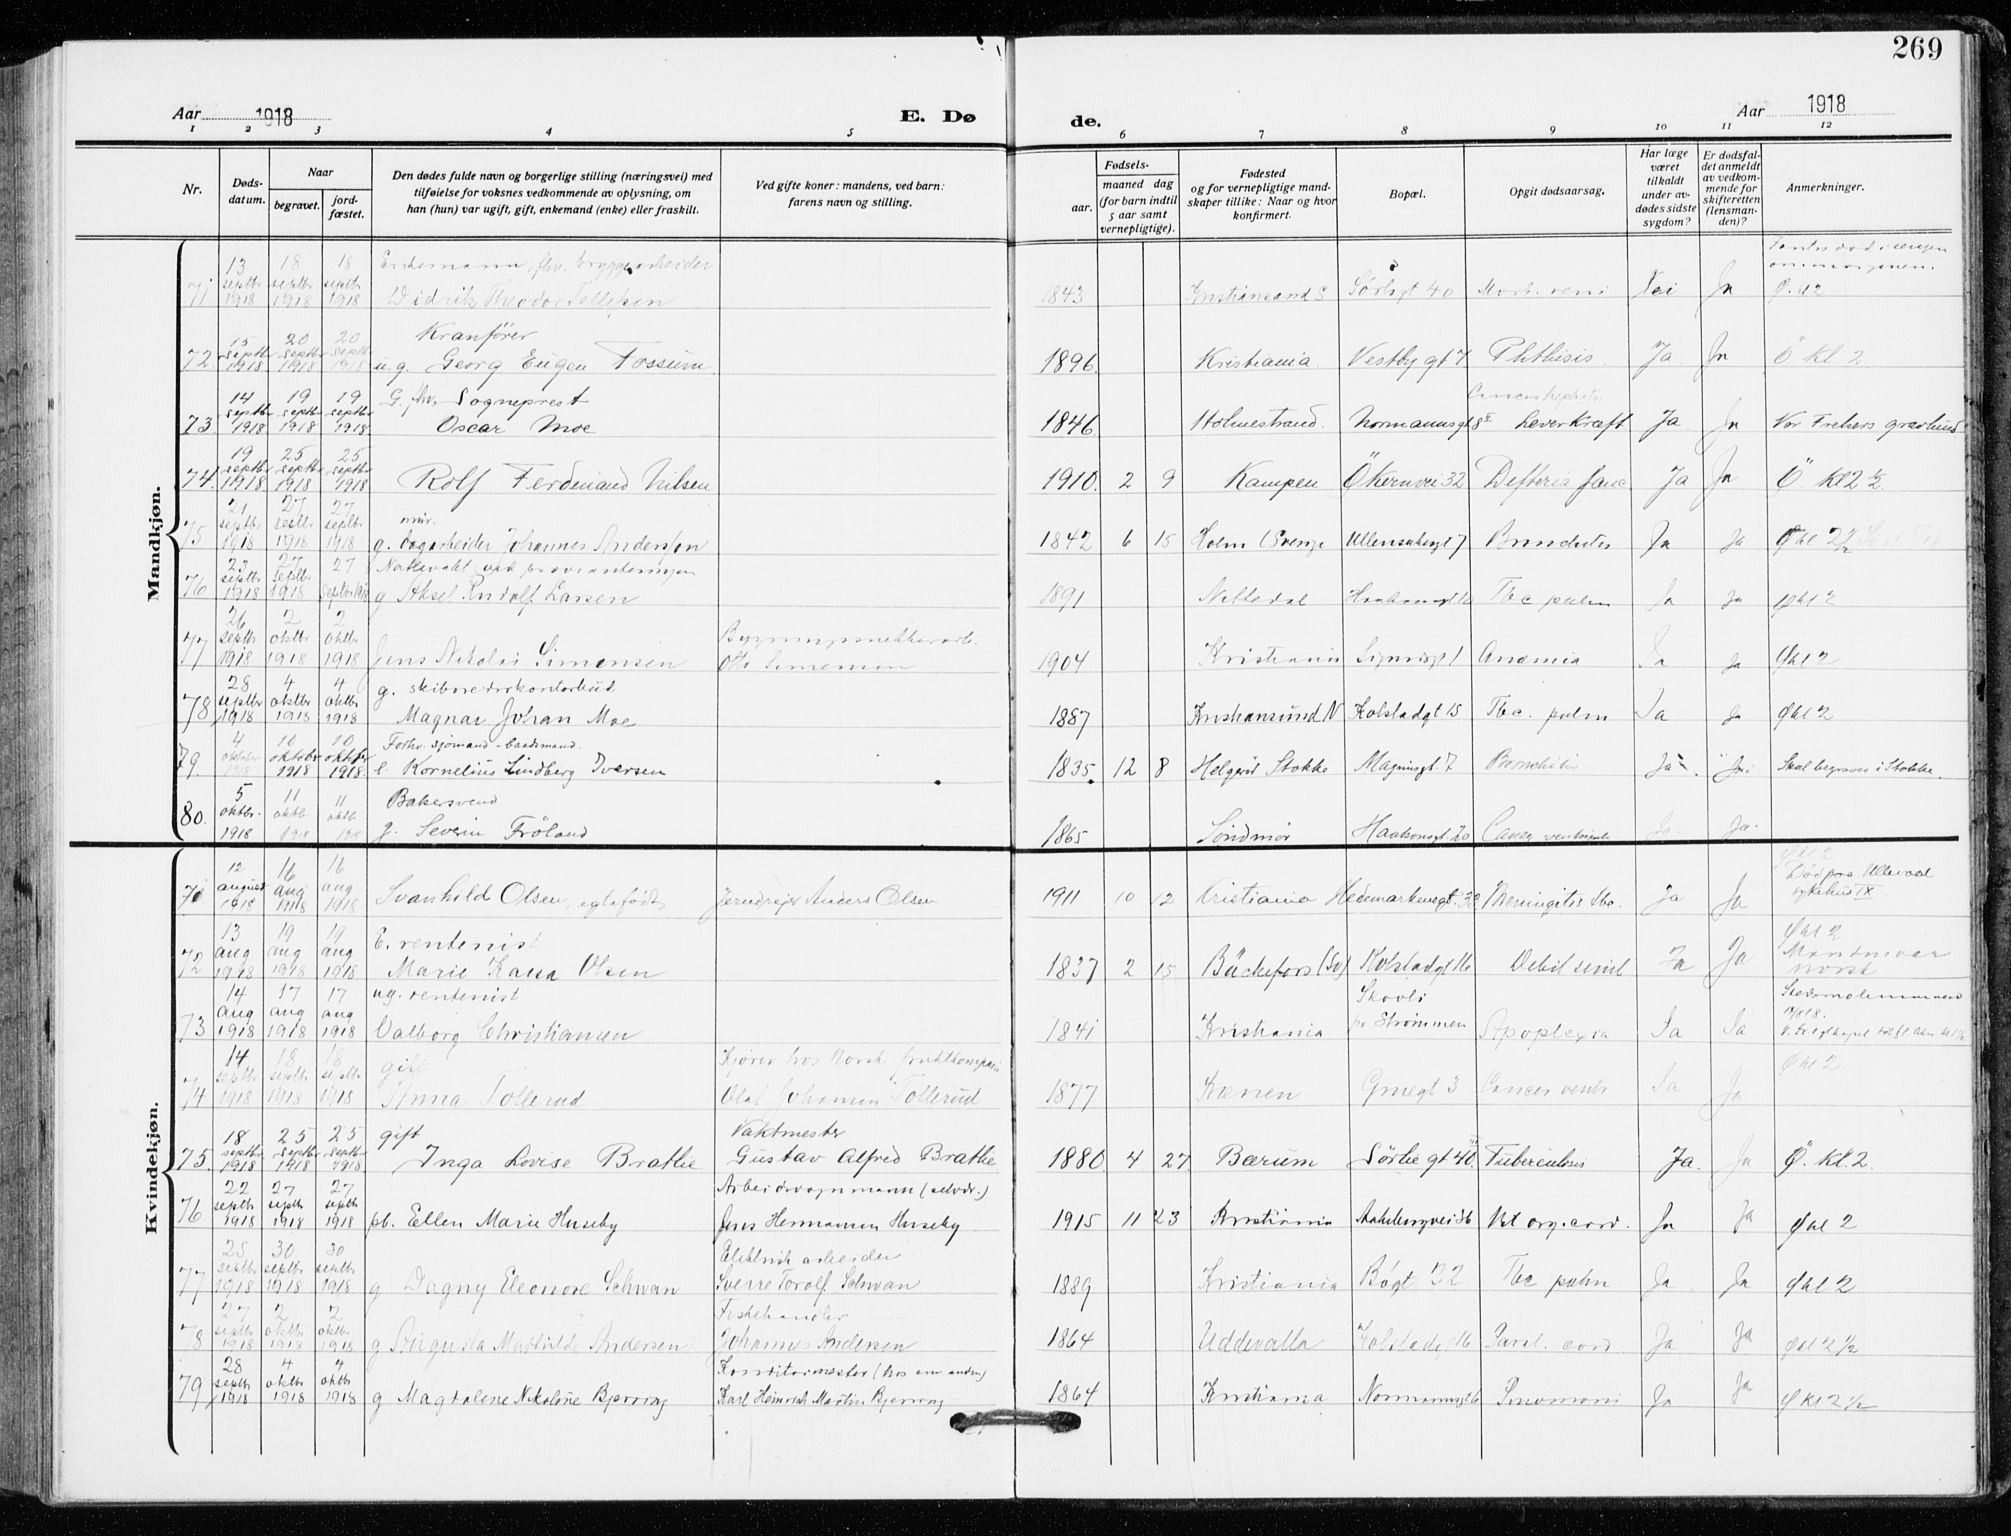 269
Aar 1918
E. Dø
de.
Aar 1918
1 2 3 4 5 6 7 8 9 10 11 12
Nr.
Døds-
datum.
Naar
begravet.
jord-
fæstet.
Den dødes fulde navn og borgerlige stilling (næringsvei) med
tilføielse for voksnes vedkommende av oplysning, om
han (hun) var ugift, gift, enkemand (enke) eller fraskilt.
Ved gifte koner: mandens, ved barn:
farens navn og stilling.
Fødsels-
aar.
maaned dag
(for barn indtil
5 aar samt
vernepligtige).
Fødested
og for vernepligtige mand-
skaper tillike: Naar og hvor
konfirmert.
Bopæl.
Opgit dødsaarsag.
Har læge
været
tilkaldt
under av-
dødes sidste
sygdom?
Er dødsfal-
det anmeldt
av vedkom-
mende for
skifteretten
(lensman-
den)?
Anmerkninger.
Mandkjøn.
13 18 18 Enkemann, fhv. bryggearbeider
71 septbr 1918 septbr 1918 septbr 1918 Didrik Theodor Tellefsen 1843 Kristiansand S Sørligt 40 Morb. Nei Ja Ø. kl 2
15 20 20 Kranfører
72. septbr 1918 septbr 1918 septbr 1918 u.g. Georg Eugen Fossum 1896. Kristiania. Vestbygt 7 Phthisis. Ja Ja Ö kl. 2
14 19 19 G. fhv. Sogneprest
73 septbr 1918 septbr 1918 septbr 1918 Oscar Moe 1846. Holmestrand. Normannsgt 8 Leverkræft Ja Ja Vor Frelsers gravlund
19 25 25
74. septbr 1918 septbr 1918 septbr 1918 Rolf Ferdinand Nilsen 1910. 2 9 Kampen Ökernvei 32 Difteria Ja Ja Ö. Kl 2 1/2
21 27 27 mur.
75 septbr 1918 septbr 1918 septbr 1918 g. dagarbeider Johannes Anderssen 1842 6 15 Holm (Sverige Ullensakergt 7 Ja Ja Ø kl 2 1/2
23 27 27 Nattevakt ved provianteringen
76 septbr 1918 septbr 1918 septbr 1918 g Aksel Rudolf Larsen 1891 Nittedal Haakonsgt 10 Tbc pulm Ja Ja Ø kl 2
26 2 2 Bygningssnekkerarb.
77 septbr 1918 oktbr 1918 oktbr 1918 Jens Nikolai Simensen Otto Simensen 1904 Kristiania Sigurdsgt 1 Anæmia Ja Ja Ø kl 2
28 4 4 g. skibsrederkontorbud
78 septbr 1918 oktbr 1918 oktbr 1918 Magnar Johan Moe 1887 Kristiansund N Kolstadgt 15 Tbc. pulm Ja Ja Ø kl 2
4 10 10 Forhv. sjømand - baadsmand.
79. oktober 1918 oktober 1918 oktober 1918. e. Kornelius Lindberg Iversen 1835. 12 8 Helgerød Stokke Magnusgt. 7 Bronchitis Ja. Ja. Skal begraves i Stokke.
5 11 11 Bakersvend
80. oktbr. 1918 oktb. 1918 oktb 1918 g. Severin Fröland 1865 Söndmør Haakonsgt. 20 Cancer ventriculi Ja. Ja.
Kvindekjøn.
12 16 16 Ø kl 2
71 august 1918 aug 1918 aug 1918 Svanhild Olsen, egtefødt Jerndreier Anders Olsen 1911 10 12 Kristiania Hedemarkensgt. Meningitis tbc. Ja Ja Död paa Ullevaal sykehus IX.
13 19 19 E. rentenist Ø kl 2
72 aug 1918 aug 1918 aug 1918 Marie Kaisa Olsen 1837 2 15 Bäckefors (Sv) Kolstadgt 16 Debil senil Ja Ja Manden var norsk
14 17 17 ug. rentenist Skovli
73 aug 1918 aug 1918 aug 1918 Valborg Christiansen 1841 Kristiania pr Strømmen Apoplexia Ja Ja
14 18 18 gift Kjører hos Norsk fruktkompani Ø kl 2
74 septbr 1918 septbr 1918 septbr 1918 Anna Tollerud Olaf Johansen Tollerud 1877 Gruegt 3 Cancer ventr Ja Ja
18 25 25 gift Vaktmester
75. septbr 1918 septbr 1918 septbr 1918 Inga Lovise Brathe Gustav Alfred Brathe 1880. 4 27 Bærum Sörliegt 40. Tuberculosis Ja. Ja Ö. kl. 2.
22 27 27 Arbeidsvognmann (selvdr.)
76 septbr 1918 septbr 1918 septbr 1918 pb. Ellen Marie Huseby Jens Hermansen Huseby 1915 11 23 Kristiania Aakebergvei 36 Vit. org. cord. Ja Ja Ø kl 2
25 30 30 Elektrisk arbeider
77 septbr 1918 septbr 1918 septbr 1918 g Dagny Eleonore Schwan Sverre Torolf Schwan 1889 Kristiania Bögt 32 Tbc pulm Ja Ja Ø kl 2
27 2 2 Fiskehandler
78 septbr 1918 oktbr 1918 oktbr 1918 g Augusta Mathilde Andersen Johannes Andersen 1864 Uddevalla Kolstadgt 16 Paral. cord. Ja Ja Ø kl 2 1/2
28 4 4 Konditormester
79 septbr 1918 oktbr 1918 oktbr 1918 g Magdalene Nikoline Bjerring Karl Heinrich Martin Bjerring 1864 Kristiania Normannsgt 6 Pneumoni Ja Ja Ø kl 2 1/2